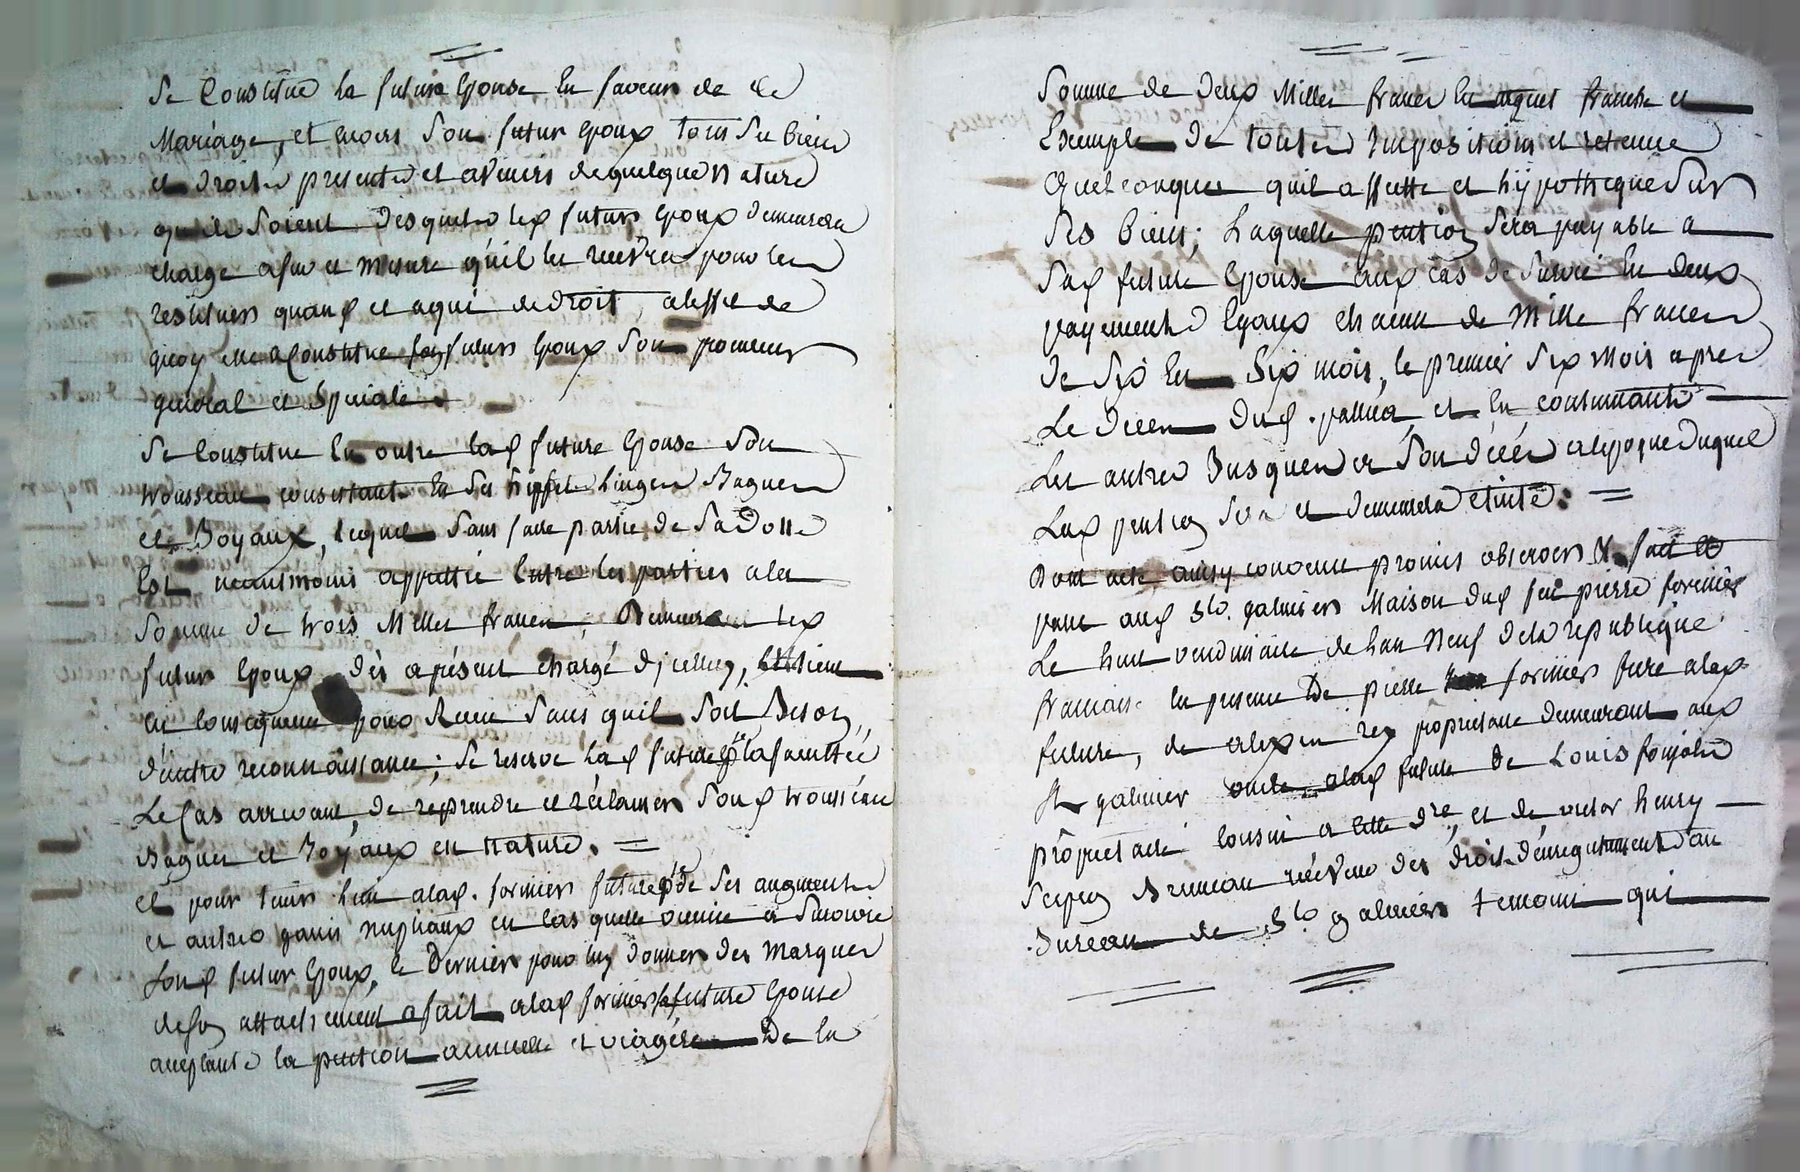 Se Constitue la future Epouse En faveur de ce
Mariage, et envers Son futur Epoux tous Ses biens
et droits presents et avenirs de quelque Nature
qu'ils Soient desquels led futur Epoux demeurera
charge afur et mesure qu'il les recevra pour les
restituer quand et aqui de droit, aleffet de
quoy elle a Constitue sond futur Epoux Son procureur
general et Special
Se Constitue En outre lad future Epouse Son
trousseau consistant En Ses hippes Linges Bagues
et Joyaux, lequel Sans faire partie de Sa Dotte
Est neantmoins appretié Entre les parties ala
Somme de trois Milles francs, Demeure led
futur Epoux dès aprésent chargé d'jcelluy,
en consequence pour Recu Sans quil Soit Besoin
d'autre reconnaissance; Se reserve lad future la facultée
Le Cas arrivant, de reprendre et réclamer Sond trousseau
Bagues et Joyaux en Nature. =
et pour tenir lieu alad. forissier future de Ses augments
et autres gains nuptiaux en Cas quelle vienne a Survivre
Sond futur Epoux, ce Dernier pour luy donner des Marques
de son attachement a fait alad forissier future Epouse
acceptante la pention annuelle et viagére De la
Somme de deux Milles francs En franche et
Exempte de toutes Impositions et retenue
Quelconques quil assitte et hÿpotheque Sur
Ses biens; Laquelle pention Sera payable a
Sad future Epouse aud cas de Survie En deux
payements Egaux chacun de Mille francs
de Six En Six mois, le premier Six Mois apres
Le Décés dud. et En continuant
Les autres Jusques a Son décés alepoque duquel
Lad pention Sera et demeurera étinte. =
Dont acte, ainsy convenu promis observer & fait et
passé aud St. galmier Maison dud feu pierre forissier
Le huit vendimiaire de lan Neuf dela republique
francaise En presence De pierre forissier frere alad
future, de rey proprietaire demeurant aud
St galmier oncle alad future de Louis
propriétaire Cousin a cette dre, et de victor henry
Scipion Bruneau recéveur des droits d'enregistrement au
Bureau de St galmier temoins qui